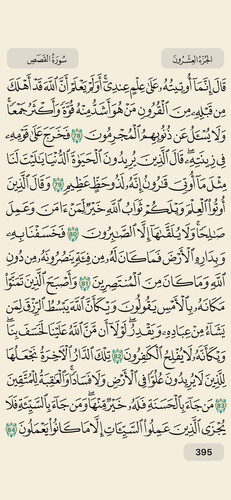 الجُزْءُ العِشْرُونَ سُورَةُ القَصَصِ
قَالَ إِنَّمَآ أُوتِيتُهُۥ عَلَىٰ عِلْمٍ عِندِىٓۚ أَوَلَمْ يَعْلَمْ أَنَّ ٱللَّهَ قَدْ أَهْلَكَ
مِن قَبْلِهِۦ مِنَ ٱلْقُرُونِ مَنْ هُوَ أَشَدُّ مِنْهُ قُوَّةً وَأَكْثَرُ جَمْعًاۚ
وَلَا يُسْـَٔلُ عَن ذُنُوبِهِمُ ٱلْمُجْرِمُونَ 78 فَخَرَجَ عَلَىٰ قَوْمِهِۦ
فِى زِينَتِهِۦۖ قَالَ ٱلَّذِينَ يُرِيدُونَ ٱلْحَيَوٰةَ ٱلدُّنْيَا يَـٰلَيْتَ لَنَا
مِثْلَ مَآ أُوتِىَ قَـٰرُونُ إِنَّهُۥ لَذُو حَظٍّ عَظِيمٍ 79 وَقَالَ ٱلَّذِينَ
أُوتُوا۟ ٱلْعِلْمَ وَيْلَكُمْ ثَوَابُ ٱللَّهِ خَيْرٌ لِّمَنْ ءَامَنَ وَعَمِلَ
صَـٰلِحًا وَلَا يُلَقَّىٰهَآ إِلَّا ٱلصَّـٰبِرُونَ 80 فَخَسَفْنَا بِهِۦ
وَبِدَارِهِ ٱلْأَرْضَ فَمَا كَانَ لَهُۥ مِن فِئَةٍ يَنصُرُونَهُۥ مِن دُونِ
ٱللَّهِ وَمَا كَانَ مِنَ ٱلْمُنتَصِرِينَ 81 وَأَصْبَحَ ٱلَّذِينَ تَمَنَّوْا۟
مَكَانَهُۥ بِٱلْأَمْسِ يَقُولُونَ وَيْكَأَنَّ ٱللَّهَ يَبْسُطُ ٱلرِّزْقَ لِمَن
يَشَآءُ مِنْ عِبَادِهِۦ وَيَقْدِرُۖ لَوْلَآ أَن مَّنَّ ٱللَّهُ عَلَيْنَا لَخَسَفَ بِنَاۖ
وَيْكَأَنَّهُۥ لَا يُفْلِحُ ٱلْكَـٰفِرُونَ 82 تِلْكَ ٱلدَّارُ ٱلْـَٔاخِرَةُ نَجْعَلُهَا
لِلَّذِينَ لَا يُرِيدُونَ عُلُوًّا فِى ٱلْأَرْضِ وَلَا فَسَادًاۚ وَٱلْعَـٰقِبَةُ لِلْمُتَّقِينَ
83 مَن جَآءَ بِٱلْحَسَنَةِ فَلَهُۥ خَيْرٌ مِّنْهَاۖ وَمَن جَآءَ بِٱلسَّيِّئَةِ فَلَا
يُجْزَى ٱلَّذِينَ عَمِلُوا۟ ٱلسَّيِّـَٔاتِ إِلَّا مَا كَانُوا۟ يَعْمَلُونَ 84
395